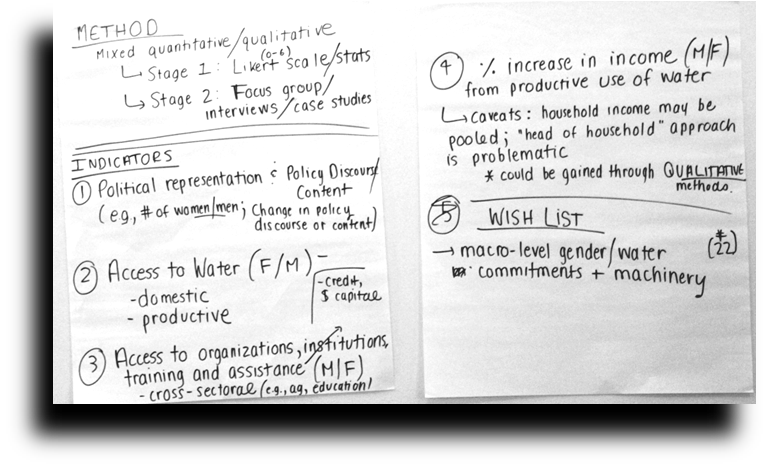 METHOD
Mixed quantitative/qualitative
(0-6)
↳ Stage 1: Likert scale/stats
↳ Stage 2: Focus group/
interviews/case studies
INDICATORS
① Political representation & Policy Discourse/
Content
(e.g., # of women/men; Change in policy
discourse or content)
② Access to Water (F/M) -
-domestic
-productive
-credit,
$ capital
③ Access to organizations, institutions,
training and assistance (M/F)
-cross-sectoral (e.g., ag, education)
④ % increase in income (M/F)
from productive use of water
↳ Caveats: household income may be
pooled; "head of household" approach
is problematic
* could be gained through QUALITATIVE
methods.
⑤ WISH LIST
→ macro-level gender/water
commitments + machinery
(#22)